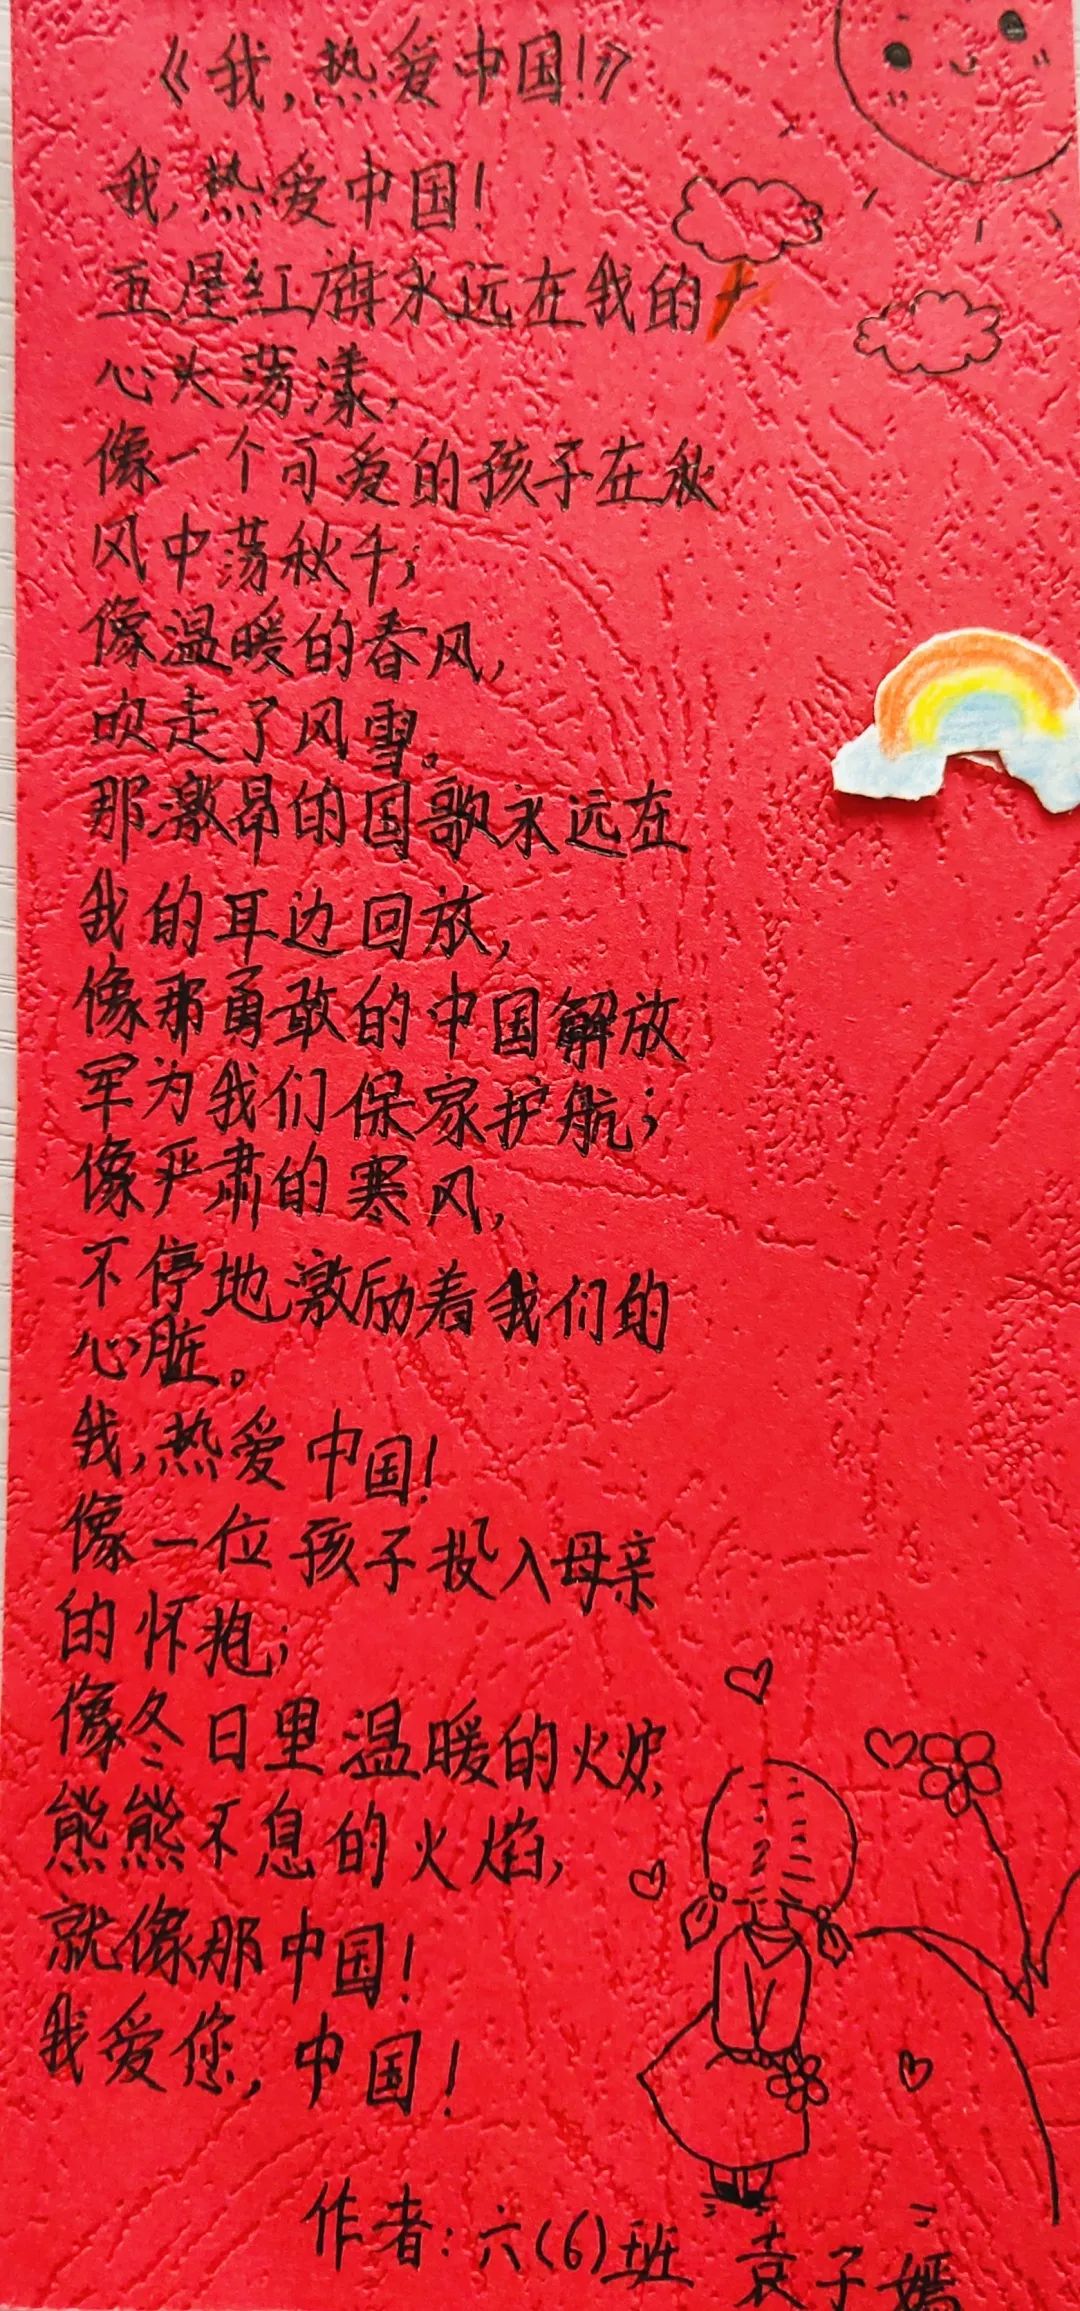 《我,热爱中国!》
我,热爱中国!
五星红旗永远在我的
心头荡漾,
像一个可爱的孩子在秋
风中荡秋千;
像温暖的春风,
吹走了风雪。
那激昂的国歌永远在
我的耳边回放,
像那勇敢的中国解放
军为我们保家护航;
像严肃的寒风,
不停地激励着我们的
心脏。
我,热爱中国!
像一位孩子投入母亲
的怀抱;
像冬日里温暖的火炉,
熊熊不息的火焰,
就像那中国!
我爱您,中国!
作者:六(6)班 袁子嫣